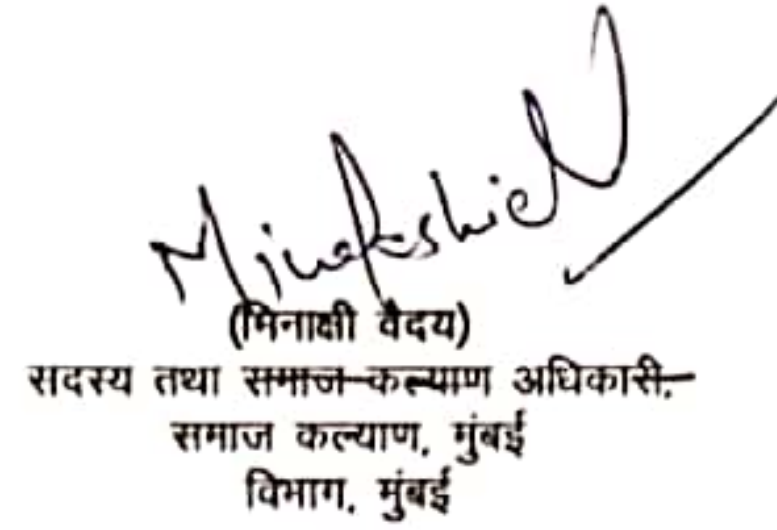 Minakshi
(मिनाक्षी वैदय)
सदस्य तथा समाज कल्याण अधिकारी.
समाज कल्याण, मुंबई
विभाग, मुंबई